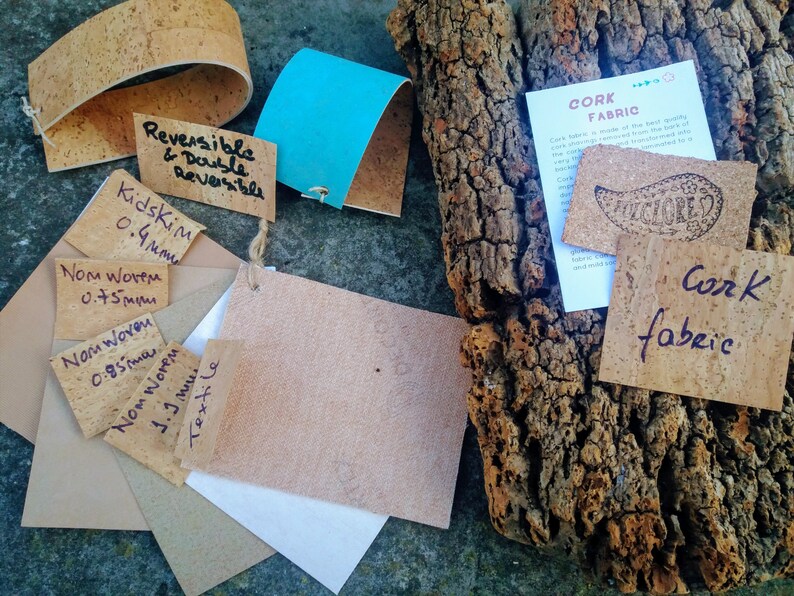 Reversible
& Double
Reversible
KidsKim
0.4mm
Nom Wovem
0.75mm
Nom Wovem
0.85mm
Nom Wovem
1.1mm
Textile
CORK
FABRIC
Cork fabric is made of the best quality
cork shavings removed from the bark of
the cork and transformed into
very th laminated to a
backin
Cork
FOLCLORE
fabric ca
and mild soa
Cork
fabric